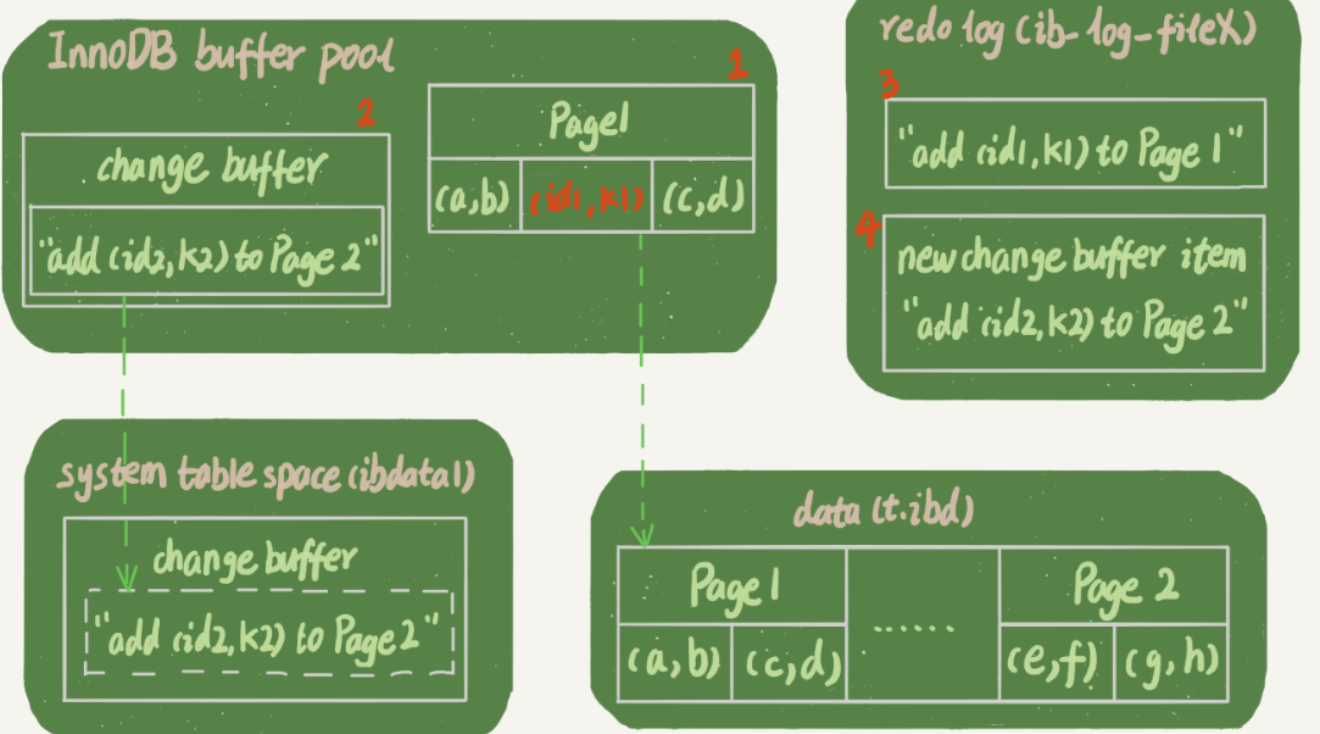 InnoDB buffer pool
1
2
change buffer
"add (id2, k2) to Page 2"
Page1
(a,b) (id1, k1) (c,d)
redo log (ib_log_fileX)
3
"add (id1, k1) to Page 1"
4
new change buffer item
"add (id2, k2) to Page 2"
system table space (ibdata1)
change buffer
"add (id2, k2) to Page 2"
data (t.ibd)
Page1 ...... Page 2
(a,b) (c,d) (e,f) (g,h)